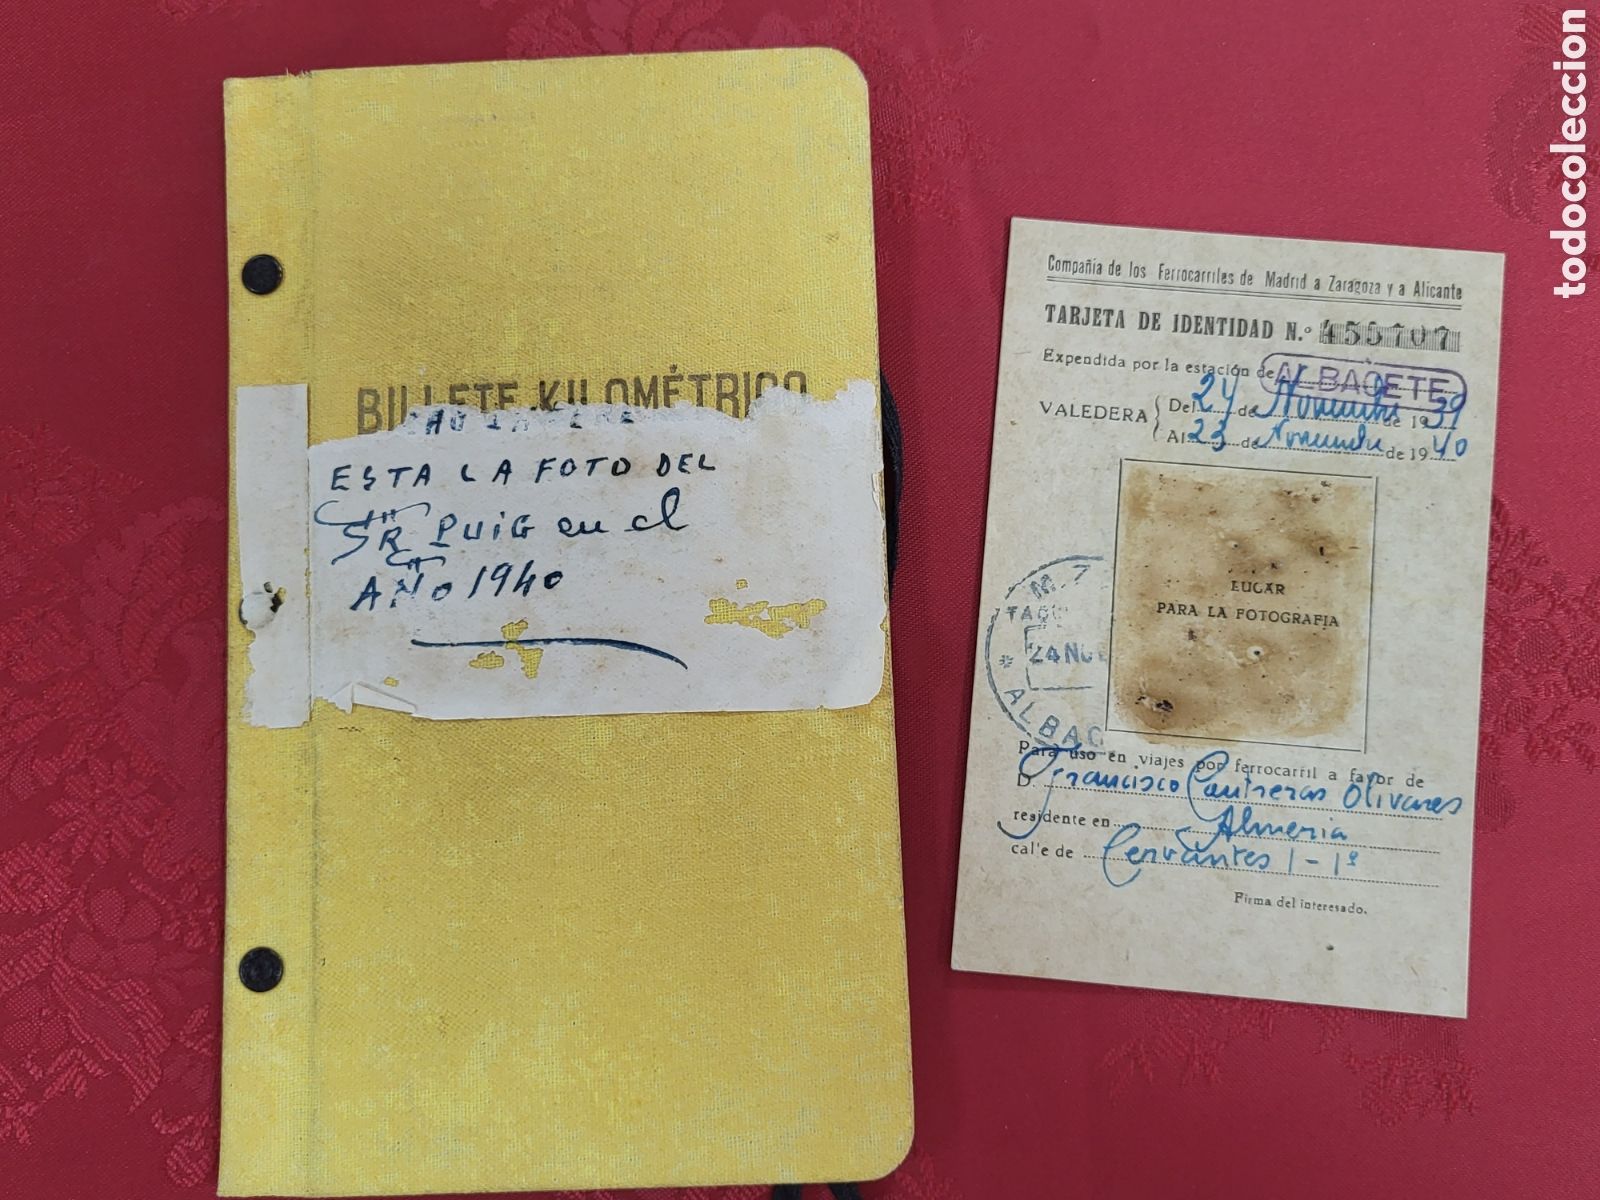 BILLETE KILOMÉTRICO
ESTA LA FOTO DEL
SR PUIG en el
AÑO 1940
Compañía de los Ferrocarriles de Madrid a Zaragoza y a Alicante
TARJETA DE IDENTIDAD N.º 455707
Expendida por la estación de ALBACETE
VALEDERA
Del 24 de Noviembre de 1939
Al 23 de Noviembre de 1940
LUGAR
PARA LA FOTOGRAFIA
M.Z.
TAQU
24 NOV
* ALBAC
Para uso en viajes por ferrocarril a favor de
D. Francisco Contreras Olivares
residente en Almeria
cal'e de Cervantes 1-1º
Firma del interesado.
todocoleccion